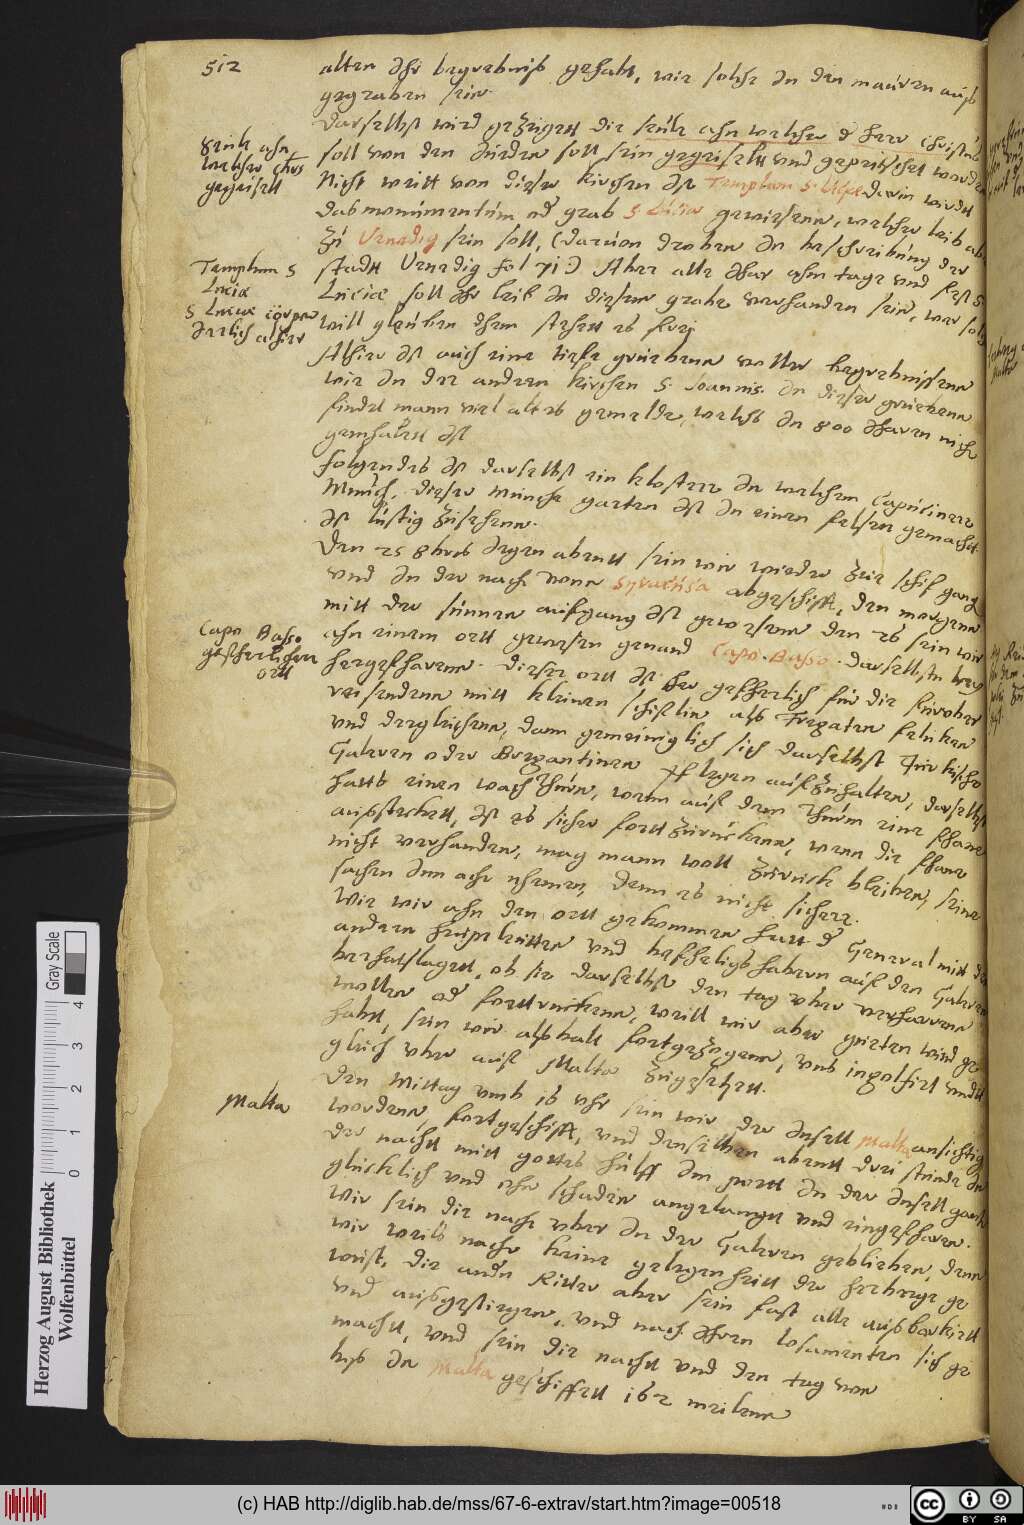 512
alten Ihr begrebniß gehabt, wie solche In den mauren auß
gegraben sein.
Daselbst wird gezeigett die seule ahn welcher d herr Christus
soll von den Jueden soll sein gegeiselt und gepeitschet worden
Seule ahn
welcher Chrs
gegeiselt
Nicht weitt von dieser kirchen Ist Templum S. Luciae darin wirdt
das monumentum od grab S Luciae gewiesenn, welcher leib aber
zu Venedig sein soll, (daruon droben In beschreibung der
stadtt Venedig fol 71) Aber alle Ihar ahm tage und fest S.
Luciae soll Ihr leib In diesem grabe verhanden sein, wer solchs
will gleuben dhem stehett es frei
Templum S
Luciae
S Luciae cörper
Jerlich alhier
Alhier Ist auch eine tiefe gruebenn voller begrebnissenn
wie In der andern kirchen S. Joannis. In dieser gruebenn
findet mann viel altes gemelde, welchs In 800 Iharen nich
gemhalett Ist
Folgendes Ist daselbst ein kloster In welchem Capuciner
Münch, dieser Münche garten Ist In einen felsen gemacht
Ist lustig zusehenn.
Den 25 8bris Jegen abentt sein wir wieder zur schif gang
und In der nacht vonn Syracusa abgeschifft, den morgenn
mitt der sunnen aufgang Ist gewesenn den 26 sein wir
ahn einem ortt gewesen genand Capo. Basso. daselbsten
hergefharenn. Dieser ortt Ist sher gefherlich für die
reisendenn mitt kleinen schiflin, als Fregaten feluken
und dergleichenn, dann gemeiniglich sich daselbst Türkische
Galeren oder Bergantinen pflegen aufzuhalten, daselbst
hatts einen wach Thurn, wenn auf dem Thurm eine fhane
außstecket, Ist es sicher fortt zurückenn, wenn die fhane
nicht verhanden, mag mann woll zurück bleiben, seine
sachen Inn acht nhemen, denn es nicht sicher.
Capo Basso
gefherlicher
ortt
Wie wir ahn den ortt gekommen hatt d General mitt den
andern heuptleutten und befheligshabern auf den Galeren
berhatslagett, ob sie daselbst den tag uber verharrenn
wollen od fortruckenn, weill wir aber gueten wind ge
habtt, sein wir alsbalt fortgezogenn, uns ingolfirt undtt
gleich uber auf Malta zugesetzett.
Den Mittag umb 16 uhr sein wir der Insell Malta ansichtig
wordenn, fortgeschifft, und denselben abentt drei stunde In
der nacht mitt gottes hülff Im portt In der Insell gantz
glücklich und ohn schaden angelangtt und eingefharen.
Malta
Wir sein die nacht uber In der Galeren geblieben, denn
wir weils nacht keine gelegenheitt der herberge ge
wust, die andn Ritter aber sein fast alle außbarkirtt
und außgestiegen, und nach Ihren losamenten sich ge
macht, und sein die nacht und den tag von
biß In Malta geschiffett 162 meilenn
Herzog August Bibliothek
Wolfenbüttel
0 1 2 3 4
Gray Scale
(c) HAB http://diglib.hab.de/mss/67-6-extrav/start.htm?image=00518
cc BY SA